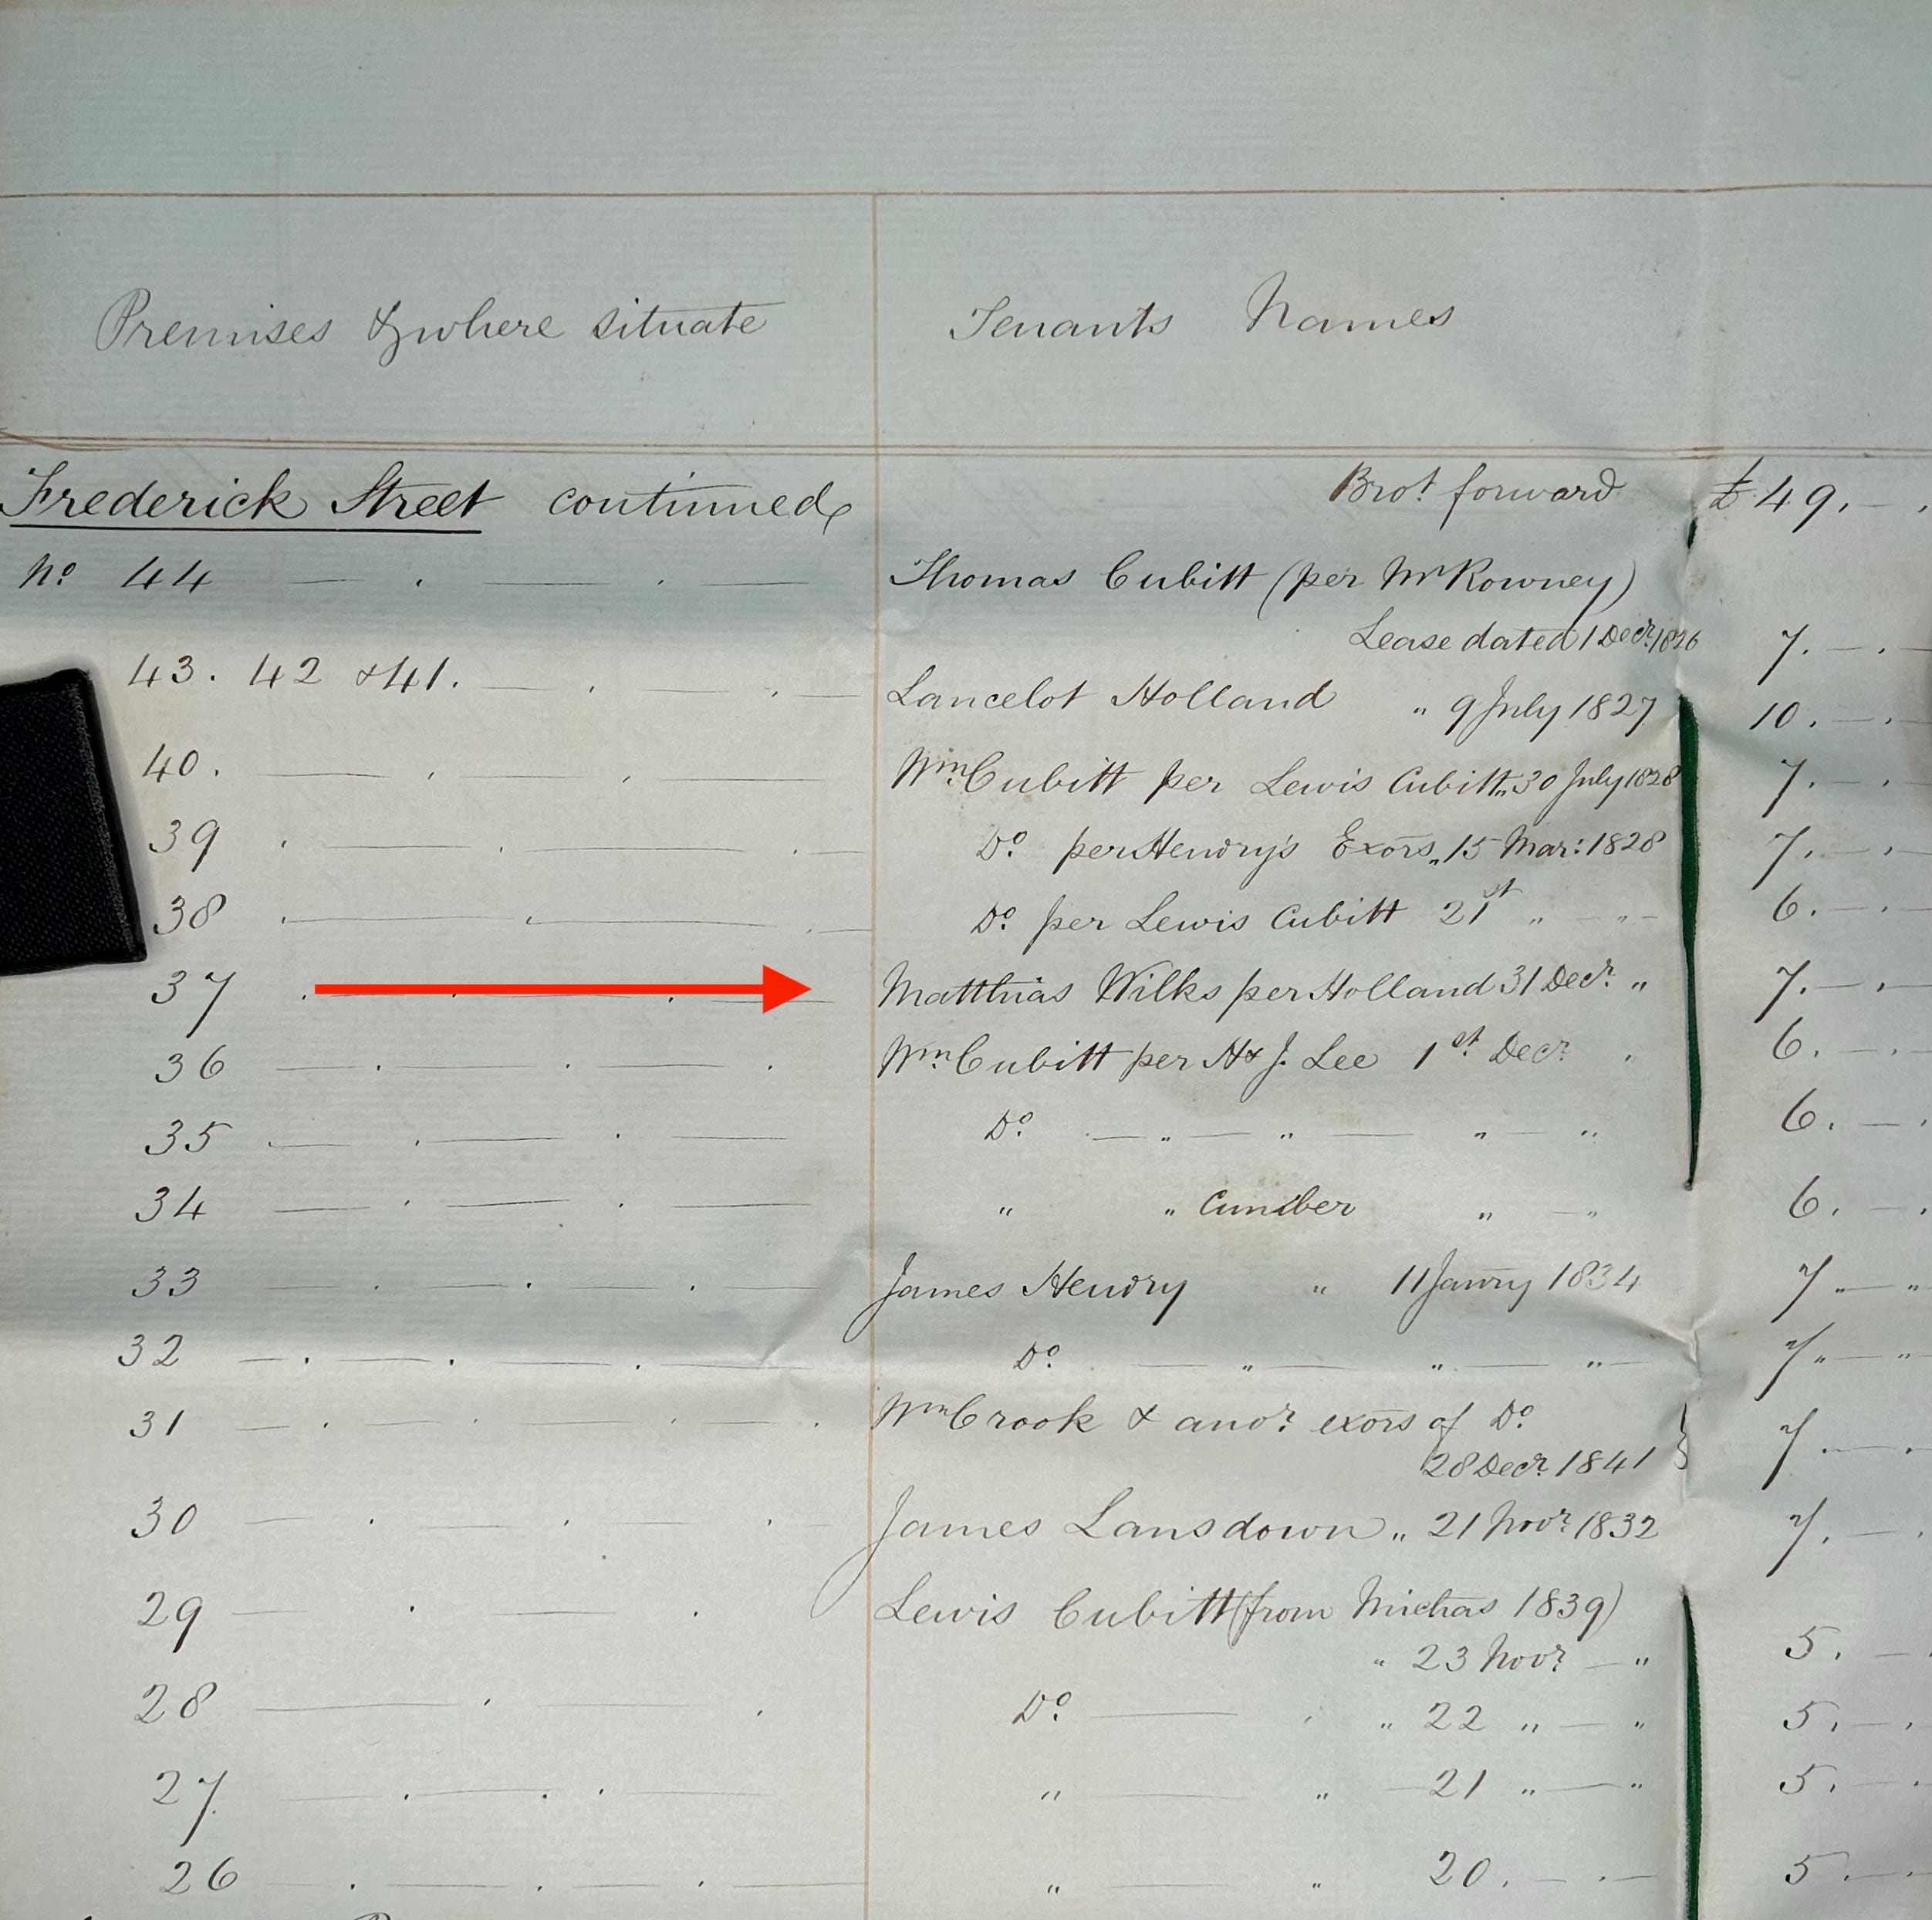 Premises & where situate Tenants Names
Frederick Street continued Brot forward £ 49. —
No 44 Thomas Cubitt (per Mr Rowney)
Lease dated 1 Decr. 1826 7. —
43. 42 & 41. Lancelot Holland " 9 July 1827 10. —
40. Wm Cubitt per Lewis Cubitt " 30 July 1828 7. —
39 Do. per Hendry's Exors " 15 Mar: 1828 7. —
38 Do. per Lewis Cubitt 21st " " 6. —
37 Matthias Wilks per Holland 31 Decr. " 7. —
36 Wm. Cubitt per H & J. Lee 1st. Decr. " 6. —
35 Do. " " " " 6. —
34 " " " " 6. —
33 James Hendry " 11 Janry 1834 7 " — "
32 Do. " " " 7 " — "
31 Wm Crook & anor. exors of Do
28 Decr. 1841 7. —
30 James Lansdown " 21 Novr. 1832 7. —
29 Lewis Cubitt (from Michas 1839)
" 23 Novr. — " 5. —
28 Do. " 22 " — " 5. —
27 " " 21 " — " 5. —
26 " " 20. — 5. —